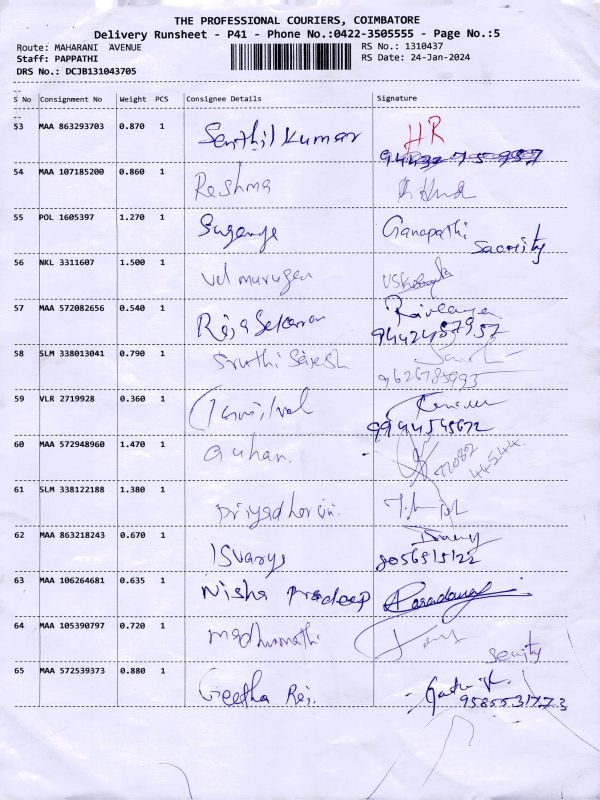 THE PROFESSIONAL COURIERS, COIMBATORE
Delivery Runsheet - P41 - Phone No.:0422-3505555 - Page No.:5
Route: MAHARANI AVENUE RS No.: 1310437
Staff: PAPPATHI RS Date: 24-Jan-2024
DRS No.: DCJB131043705
S No Consignment No Weight PCS Consignee Details Signature
53 MAA 863293703 0.870 1 Senthil Kumar HR
54 MAA 107185200 0.860 1 Reshma
55 POL 1605397 1.270 1 Suganya Ganapathi
Sacurity
56 NKL 3311607 1.500 1 vel murugan
57 MAA 572082656 0.540 1 Raja Sekaran
9442457957
58 SLM 338013041 0.790 1 Sruthi Sajesh
9626785993
59 VLR 2719928 0.360 1 Tamilval
9944545672
60 MAA 572948960 1.470 1 Guhan.
72082
44544
61 SLM 338122188 1.380 1 Priyadharsini.
62 MAA 863218243 0.670 1 ISvarys
8056515122
63 MAA 106264681 0.635 1 Nisha Pradeep
64 MAA 105390797 0.720 1 madhumathi
Seurity
65 MAA 572539373 0.880 1 Geetha Rei.
9585531773